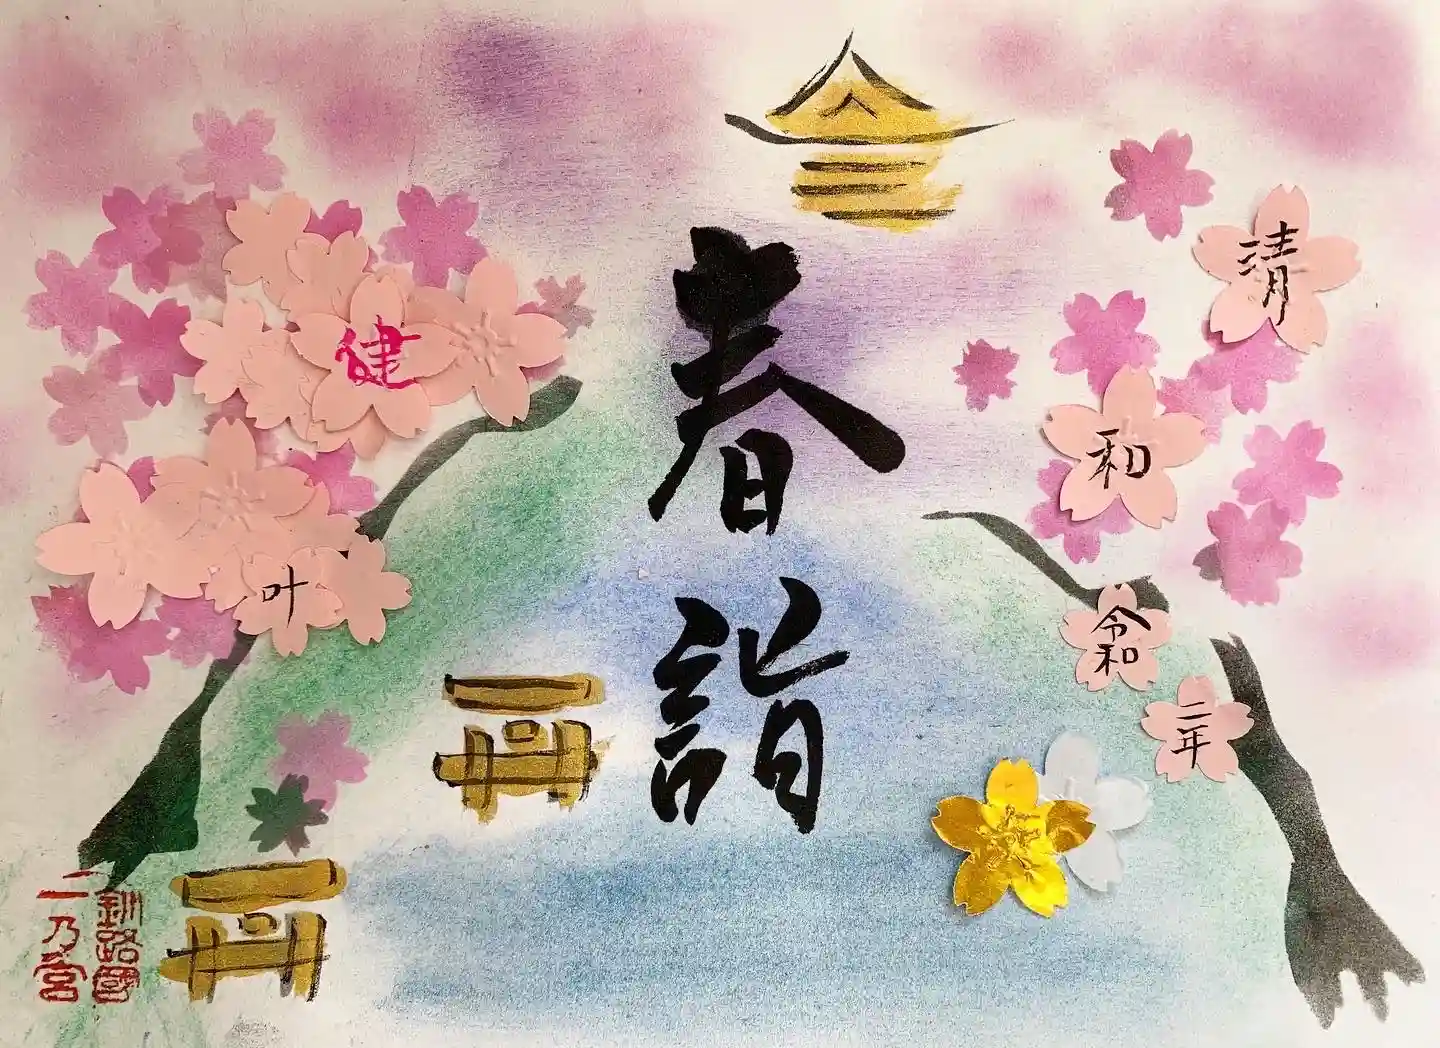 春
詣
清
和
令和
二年
健
叶
釧路國
二乃宮